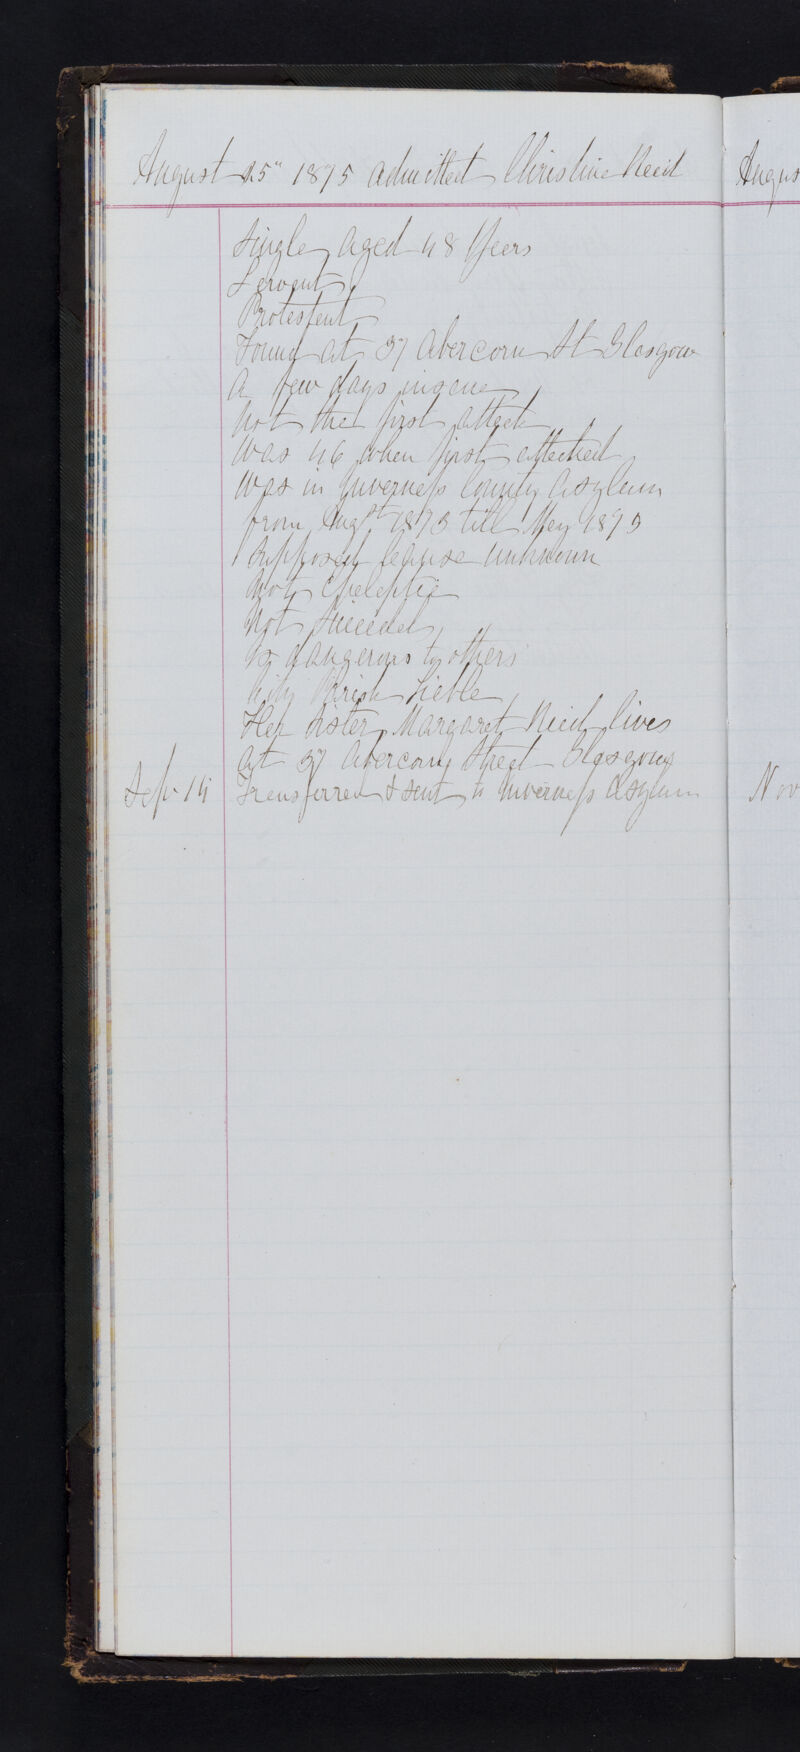 August 25" 1875 admitted Christine
Augus
Single Aged 48 Years
Servant
Protestent
Found at 37 Abercorn St Glasgow
A few days insane
Not the first attack
Was 46 when first attacked
Was in Inverness County Asylum
from Augst 1873 till May 1875
Supposed Cause unknown
Not Epeleptic
Not Sueecdel
Is dangerous to others
City Parish Lieble
Her Sister Margaret lives
At 37 Abercorn Street Glasgow
Sep 14 Transferred & sent to Inverness Asylum
Nov